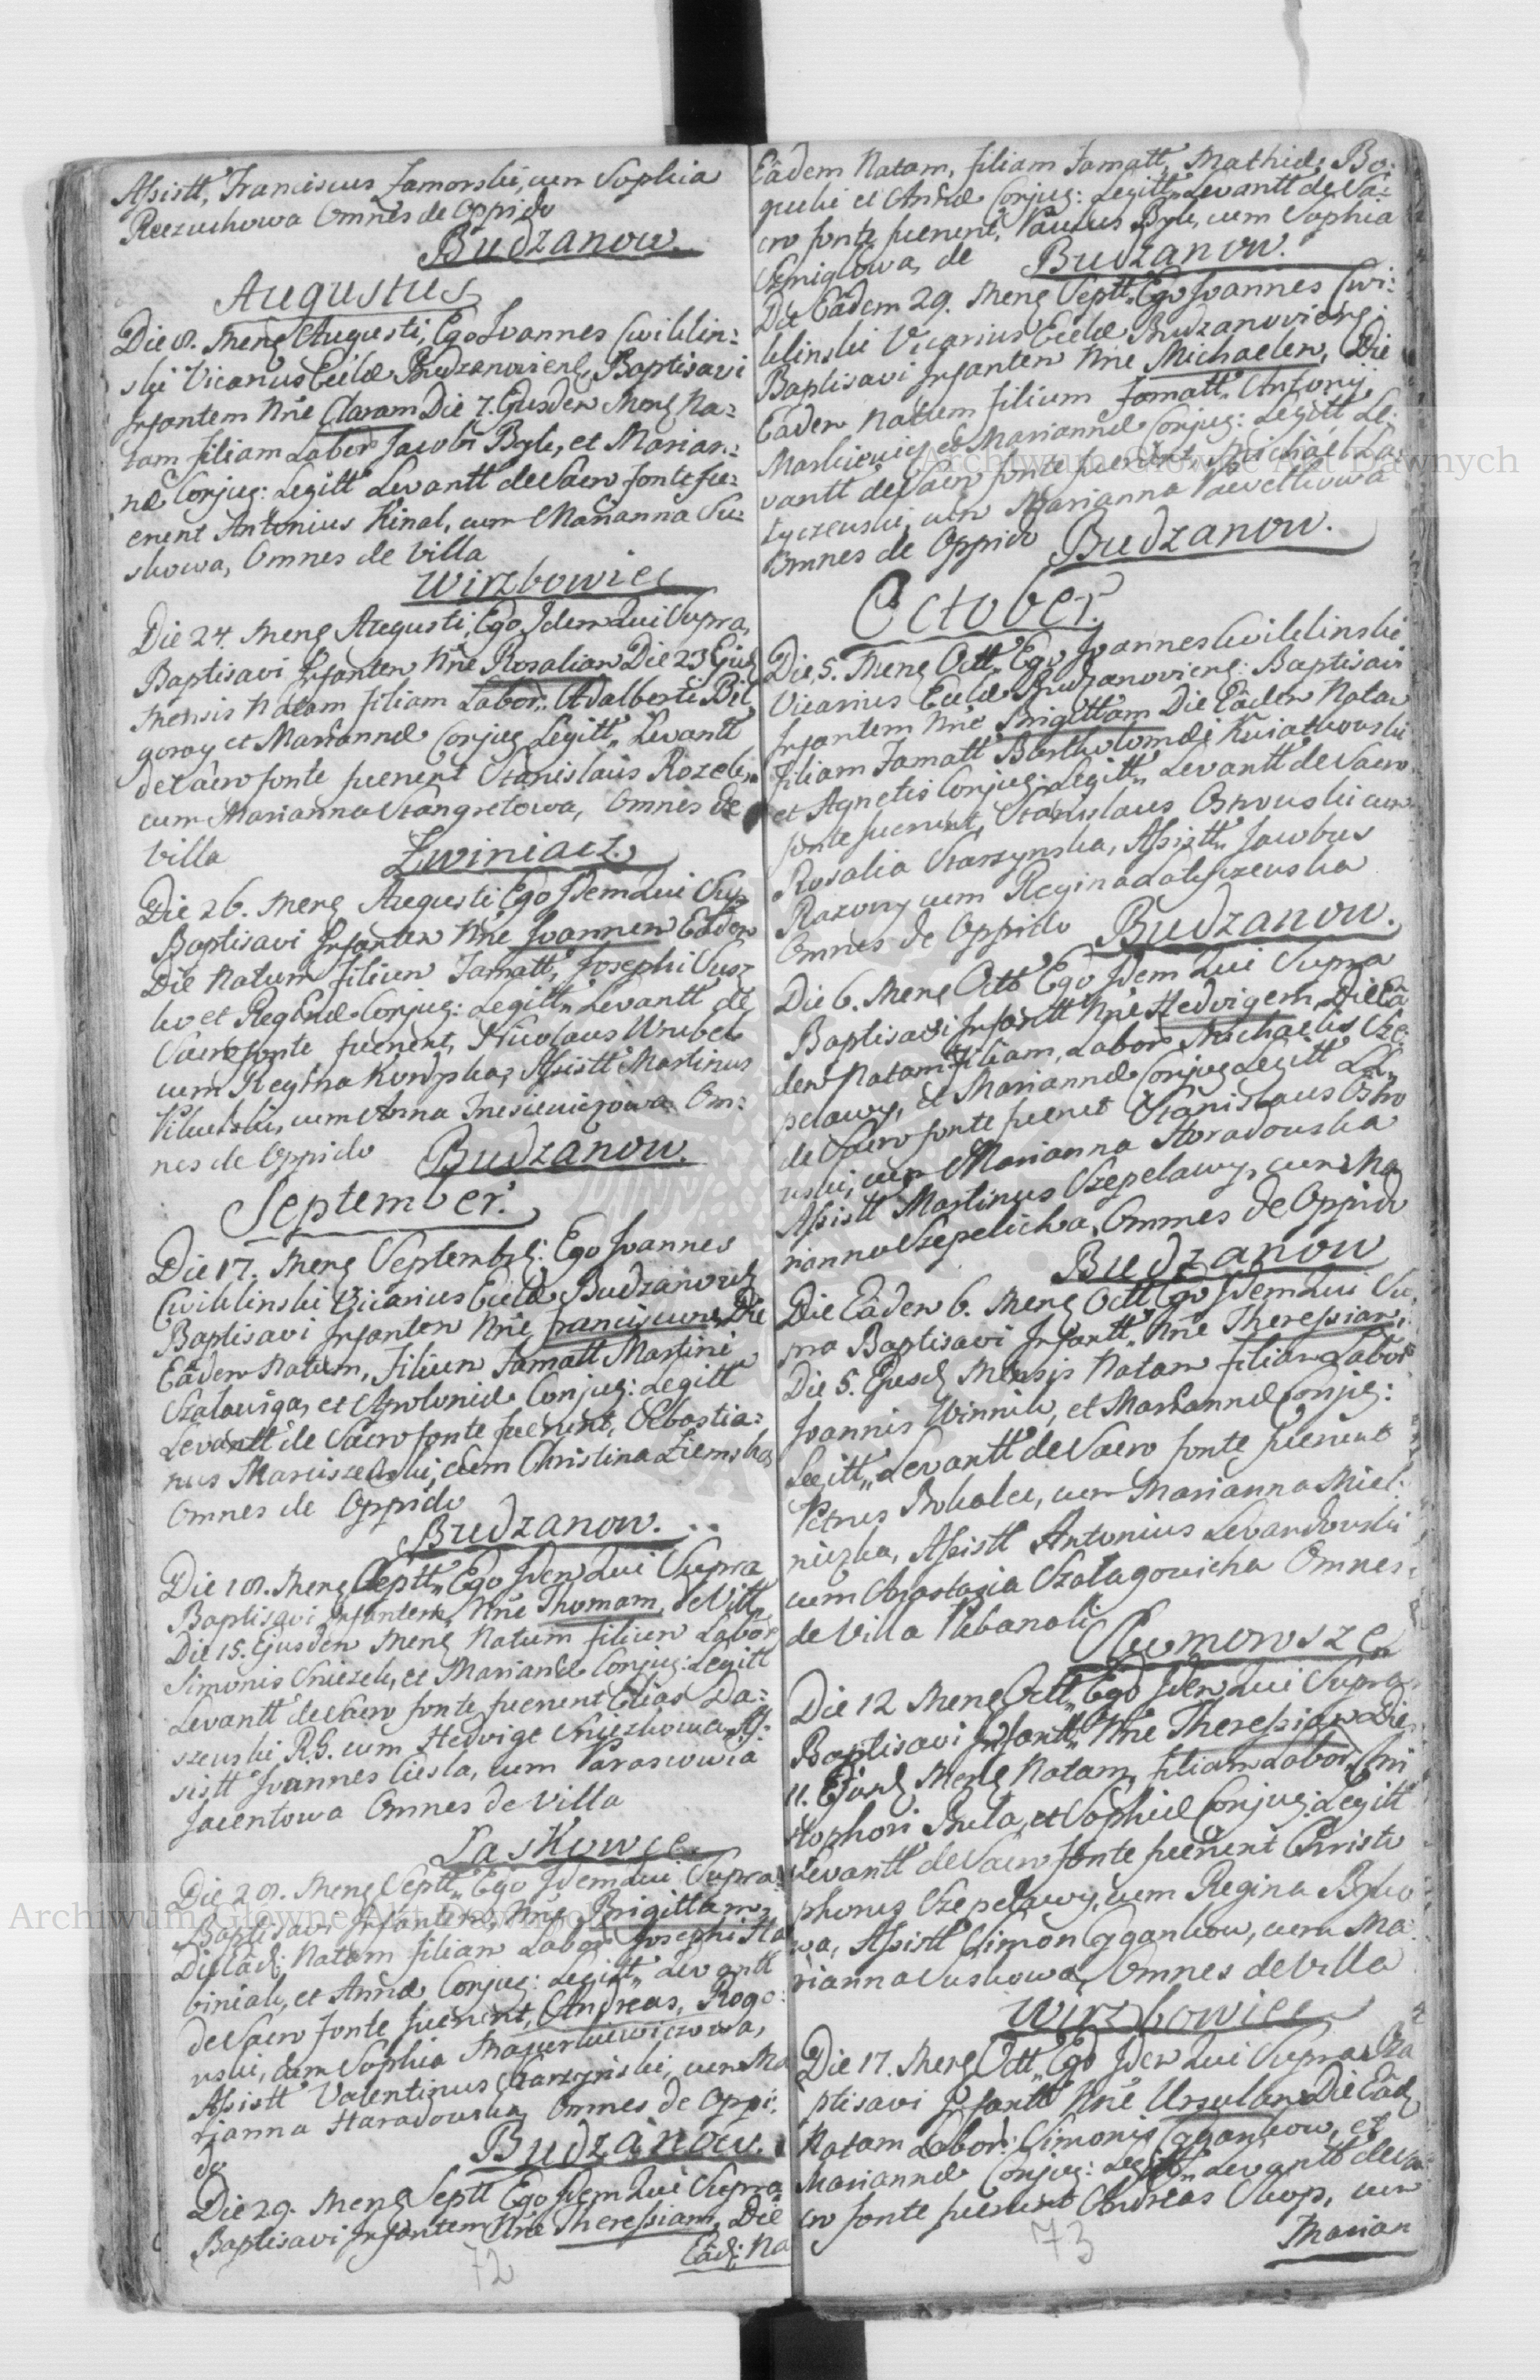 Assistt, Franciscus Jamorski, cum Sophia
Reczuchowa Omnes de Oppido
Budzanow.
Augustus
Die 8. Mens Augusti, Ego Joannes Cwiklin:
ski Vicarius Ecclæ Budzanoviens, Baptisavi
Infantem Nne Claram Die 7. Ejusdem Mens Na:
tam filiam Labor Jacobi Byk, et Marian:
næ Conjug: Legitt Levantt de Sacro fonte fu:
erunt Antonius Kinal, cum Marianna Su:
skowa, Omnes de Villa
Wirzbowiec
Die 24. Mens Augusti, Ego Idem Qui Supra,
Baptisavi Infantem Nne Rosaliam Die 23 Ejus
Mensis Natam filiam Labor: Adalberti Bil
goray et Mariannæ Conjug Legitt Levantt
de Sacro fonte fuerunt Stanislaus Rozek,
cum Marianna Stangretowa, Omnes de
Villa
Zwiniacz.
Die 26. Mens Augusti Ego Idem Qui Sup
Baptisavi Infantem Nne Joannem Eâdem
Die Natum filium Famatt, Josephi Susz
ko et Reginæ Conjug: Legitt Levantt de
Sacro fonte fuerunt, Nicolaus Wrubel
cum Regina Kordpka, Assistt Martinus
cum Anna Om:
nes de Oppido Budzanow.
September.
Die 17. Mens Septembr: Ego Joannes
Cwiklinski Vicarius Ecclæ Budzanovis
Baptisavi Infantem Nne Franciscum Die
Eâdem Natum, Filium Famatt Martini
Szalawiga, et Apoloniæ Conjug: Legitt
Levantt de Sacro fonte fuerunt, Sebastia:
nus Marciszewski, cum Christina Ziemska
Omnes de Oppido
Budzanow.
Die 18. Mens Septt Ego Idem Qui Supra
Baptisavi Infantem, Nne Thomam, de Vill
Die 15. Ejusdem Mens Natum filium Labor
Simonis Sniezek, et Mariannæ Conjug: Legitt
Levantt de Sacro fonte fuerunt Elias Da:
szewski R.G. cum Hedvige Sniezkowa As:
sistt Joannes Ciesla, cum Parascowia
Jacentowa Omnes de Villa
Laskowce
Die 28. Mens Septt Ego Idem Qui Supra
Baptisavi Infantem, Nne Brigittam,
Die Eâd: Natam filiam Labor Josephi Ha
biniak, et Annæ Conjug: Legitt Levantt
de Sacro fonte fuerunt, Andreas, Rogo:
wski, cum Sophia Mazurkiewiczowa,
Assistt Valentinus Starzynski, cum Ma
rianna Haradowska Omnes de Oppi:
do
Budzanow.
Die 29. Mens Septt Ego Idem Qui Supra
Baptisavi Infantem Nne Theressiam, Die
Eâd: Na
72
Eâdem Natam, filiam Famatt, Mathiæ Bo:
guchi et Annæ Conjug: Legitt Levantt de Sa:
cro fonte fuerunt, Paulus Byk, cum Sophia
Szmiglowa, de Budzanow.
Die Eâdem 29. Mens Septt Ego Joannes Cwi:
klinski Vicarius Ecclæ Budzanoviens:
Baptisavi Infantem Nne Michaelem, Die
Eâdem Natum filium Famatt Antonij
Markiewicz et Mariannæ Conjug: Legitt Le:
vantt de Sacro fonte fuerunt, Michael La:
tyczewski, cum Marianna Pawelkowa
Omnes de Oppido Budzanow.
October.
Die, 5. Mens Octt Ego Joannes Cwiklinski
Vicarius Ecclæ Budzanoviens: Baptisavi
Infantem Nne Brigittam Die Eâdem Natam
filiam Famatt Bartholomæi Kwiatkowski
et Agnetis Conjug: Legitt Levantt de Sacro
fonte fuerunt, Stanislaus Ostrowski cum
Rosalia Starzynska, Assistt Jacobus
Razowy cum Regina Latyczewska
Omnes de Oppido Budzanow.
Die 6. Mens Octt Ego Idem Qui Supra
Baptisavi Infantt Nne Hedvigem, Die Eâ
dem Natam filiam, Labor Michaelis Cze:
pelawy, et Mariannæ Conjug Legitt Le
de Sacro fonte fuerunt Stanislaus Ostro
wski, cum Marianna Haradowska
Assistt Martinus Szepelawy, cum Ma
rianna Szepelicha, Omnes de Oppido
Budzanow
Die Eâdem 6. Mens Octt Ego Idem Qui Su
pra Baptisavi Infantt Nne Theressiam,
Die 5. Ejusd Mensis Natam filiam Labor
Joannis Winnik, et Mariannæ Conjug:
Legitt Levantt de Sacro fonte fuerunt
Petrus cum Marianna Miel:
niczka, Assistt Antonius Levandowski
cum Anastasia Szatagowicha Omnes
de Villa Plebanali
Skomorosze
Die 12 Mens Octt Ego Idem Qui Supra
Baptisavi Infantt Nne Theressiam Die
11. Ejusd Mens Natam, filiam Labor, Chri
stophori Buta, et Sophiæ Conjug: Legitt
Levantt de Sacro fonte fuerunt Christo
phorus Szepelawy, cum Regina Byko
wa, Assistt Simon Cygankow, cum Ma
rianna Suskowa, Omnes de Villa
Wirzbowiec
Die 17. Mens Octt Ego Idem Qui Supra Ba
ptisavi Infantt Nne Ursulam Die Eâd
Natam Labor: Simonis Cygankow, et
Mariannæ Conjug: Legitt Levantt de Sa:
cro fonte fuerunt Andreas Skop, cum
Marian
73
Archiwum Główne Akt Dawnych
Archiwum Główne Akt Dawnych